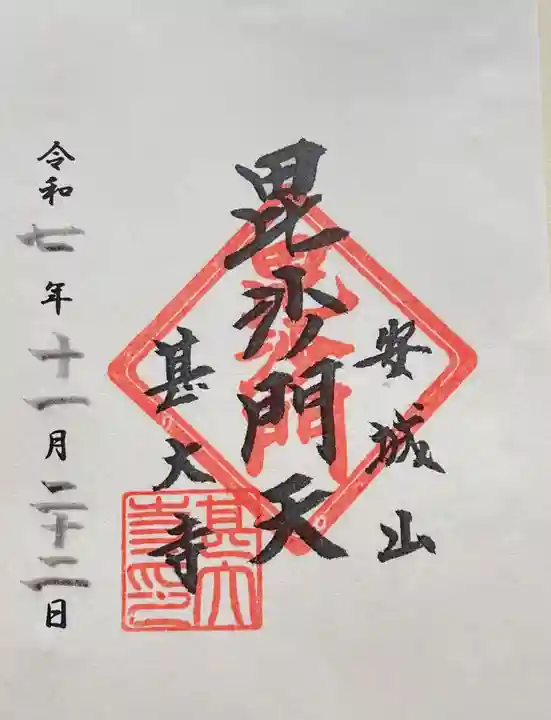 安城山
毘沙門天
甚大寺
令和七年十一月二十二日
甚大
寺印